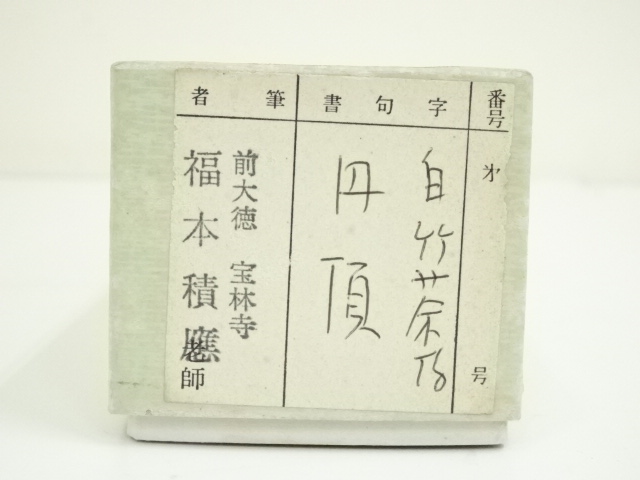 番号
第
号
字句書
白竹茶杓
円頂
筆者
前大徳 宝林寺
福本積應
老師